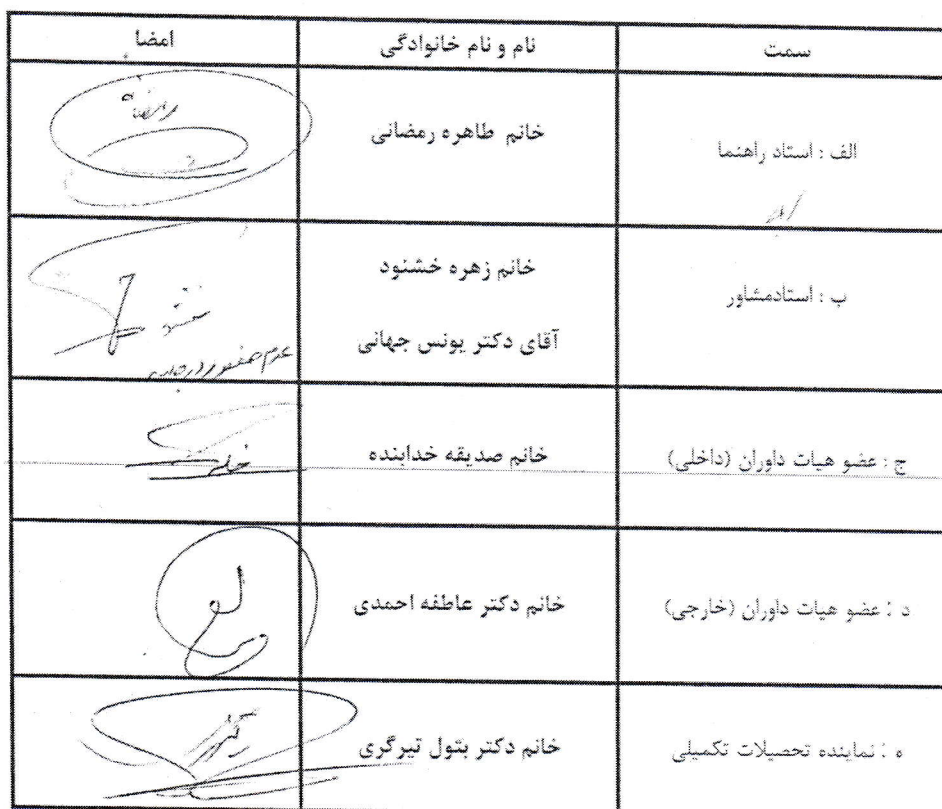 سمت
نام و نام خانوادگی
امضا
الف : استاد راهنما
خانم طاهره رمضانی
ب : استادمشاور
خانم زهره خشنود
آقای دکتر یونس جهانی
عدم حضور در جلسه
ج : عضو هیات داوران (داخلی)
خانم صدیقه خدابنده
د : عضو هیات داوران (خارجی)
خانم دکتر عاطفه احمدی
ه : نماینده تحصیلات تکمیلی
خانم دکتر بتول تیرگری